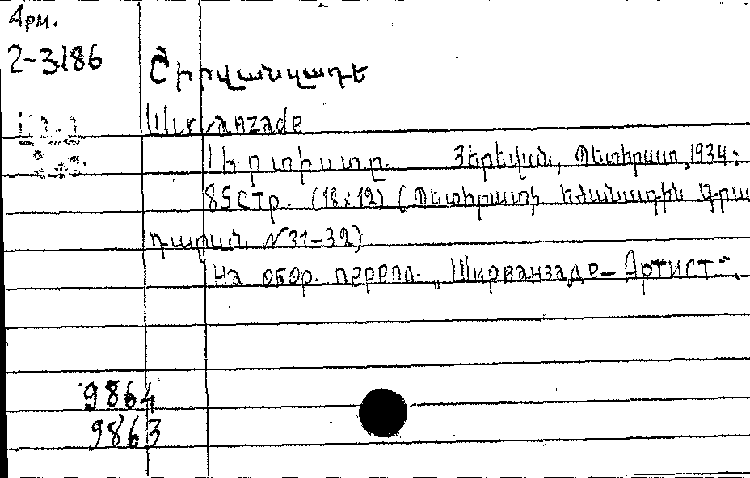 Арм.
2-3186
Շիրվանզադե
Ширванзаде
Արտիստը. Յերեվան, Պետհրատ, 1934.
85 стр. (18x12) (Պետհրատի եժանագին Գրա
դարան N31-32)
На обор. перепл. „Ширванзаде - Артист".
9864
9863